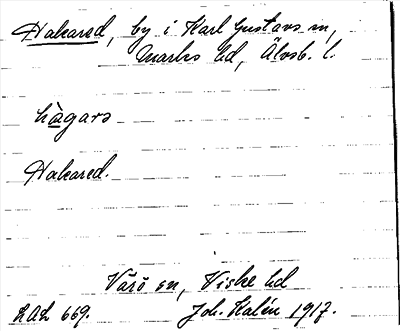 Hakared, by i Karl Gustavs sn,
Marks hd, Älvsb. l.
hàgaro
Hakared.
Värö sn, Viske hd
LAL 669. Joh. Kalén 1917.